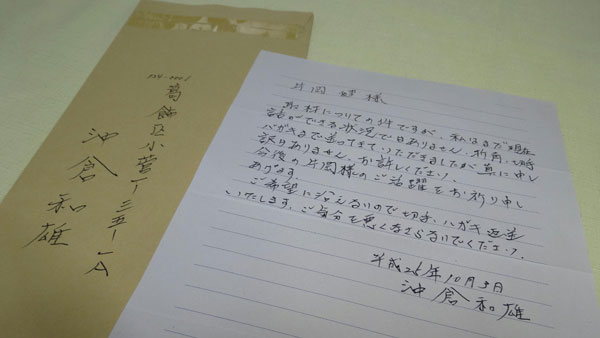 124-0001
葛飾区小菅一ー三五ー一A
池倉和雄
片岡 健 様
取材についての件ですが、私はまだ現在
話ができる状況で日ありません。折角、切手
ハガキまで送ってきていただきましたが、真に申し
訳ありません。お許しください。
今後の片岡様のご活躍をお祈り申し
あげます。
ご希望に沿えないので切手、ハガキ返送
いたします。ご気分を悪くなさらないでください。
平成26年10月9日
池倉和雄